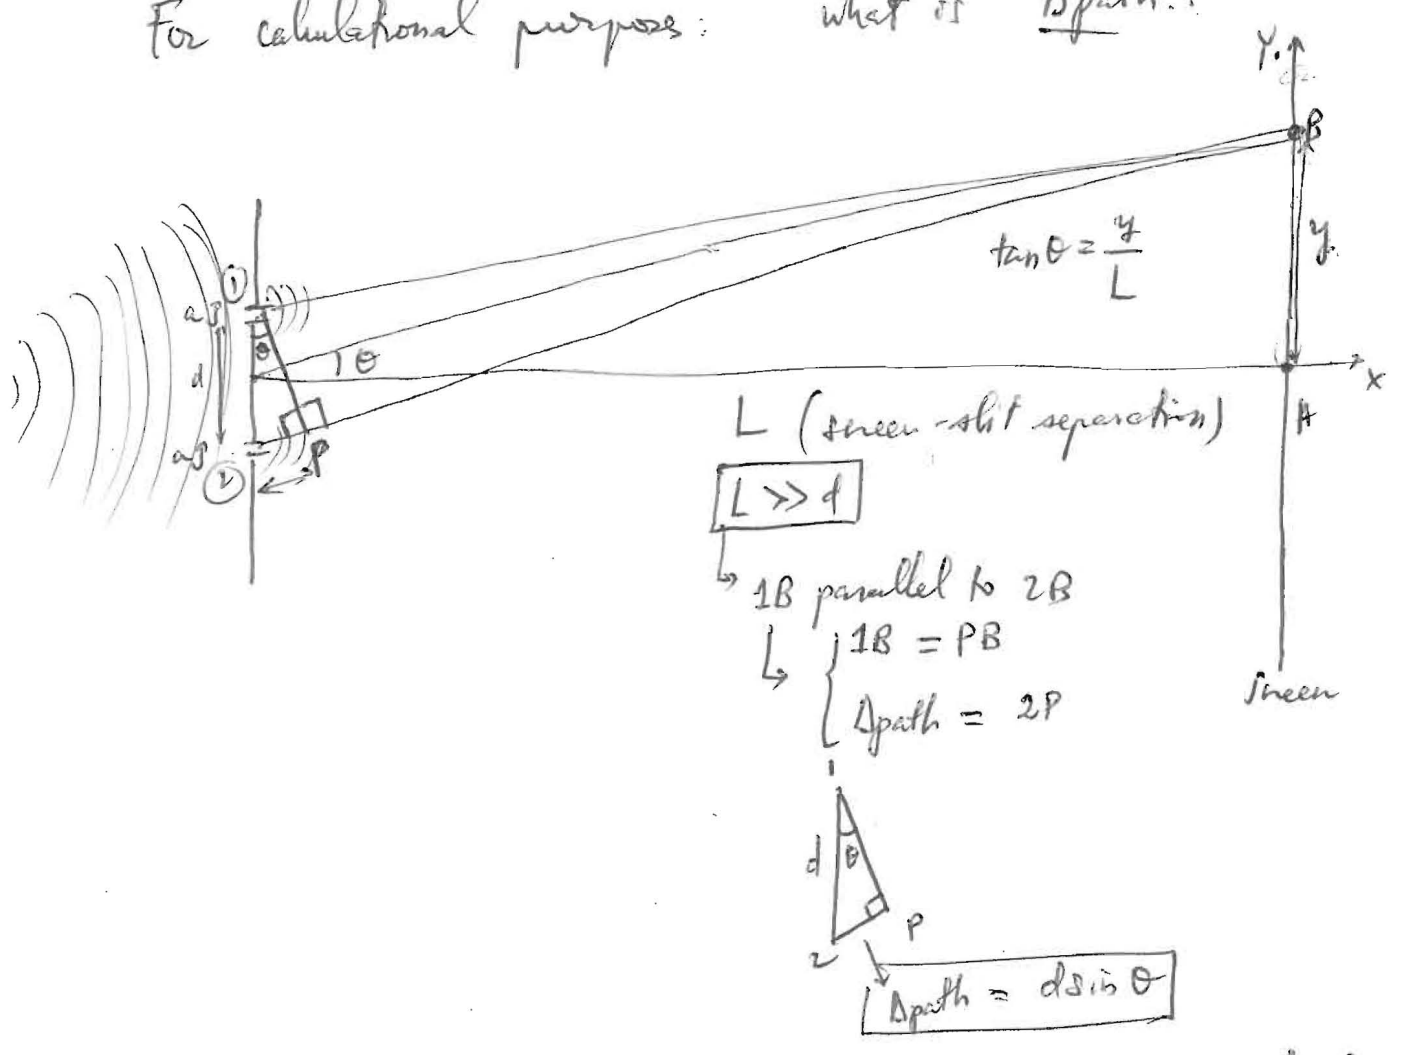 For calculational purposes: what is Δpath?
Y
B
tanθ = y/L
y
①
a
θ
θ
d
x
A
L (screen-slit separation)
a
P
②
L >> d
1B parallel to 2B
1B = PB
Screen
Δpath = 2P
1
d
θ
P
2
Δpath = d sin θ